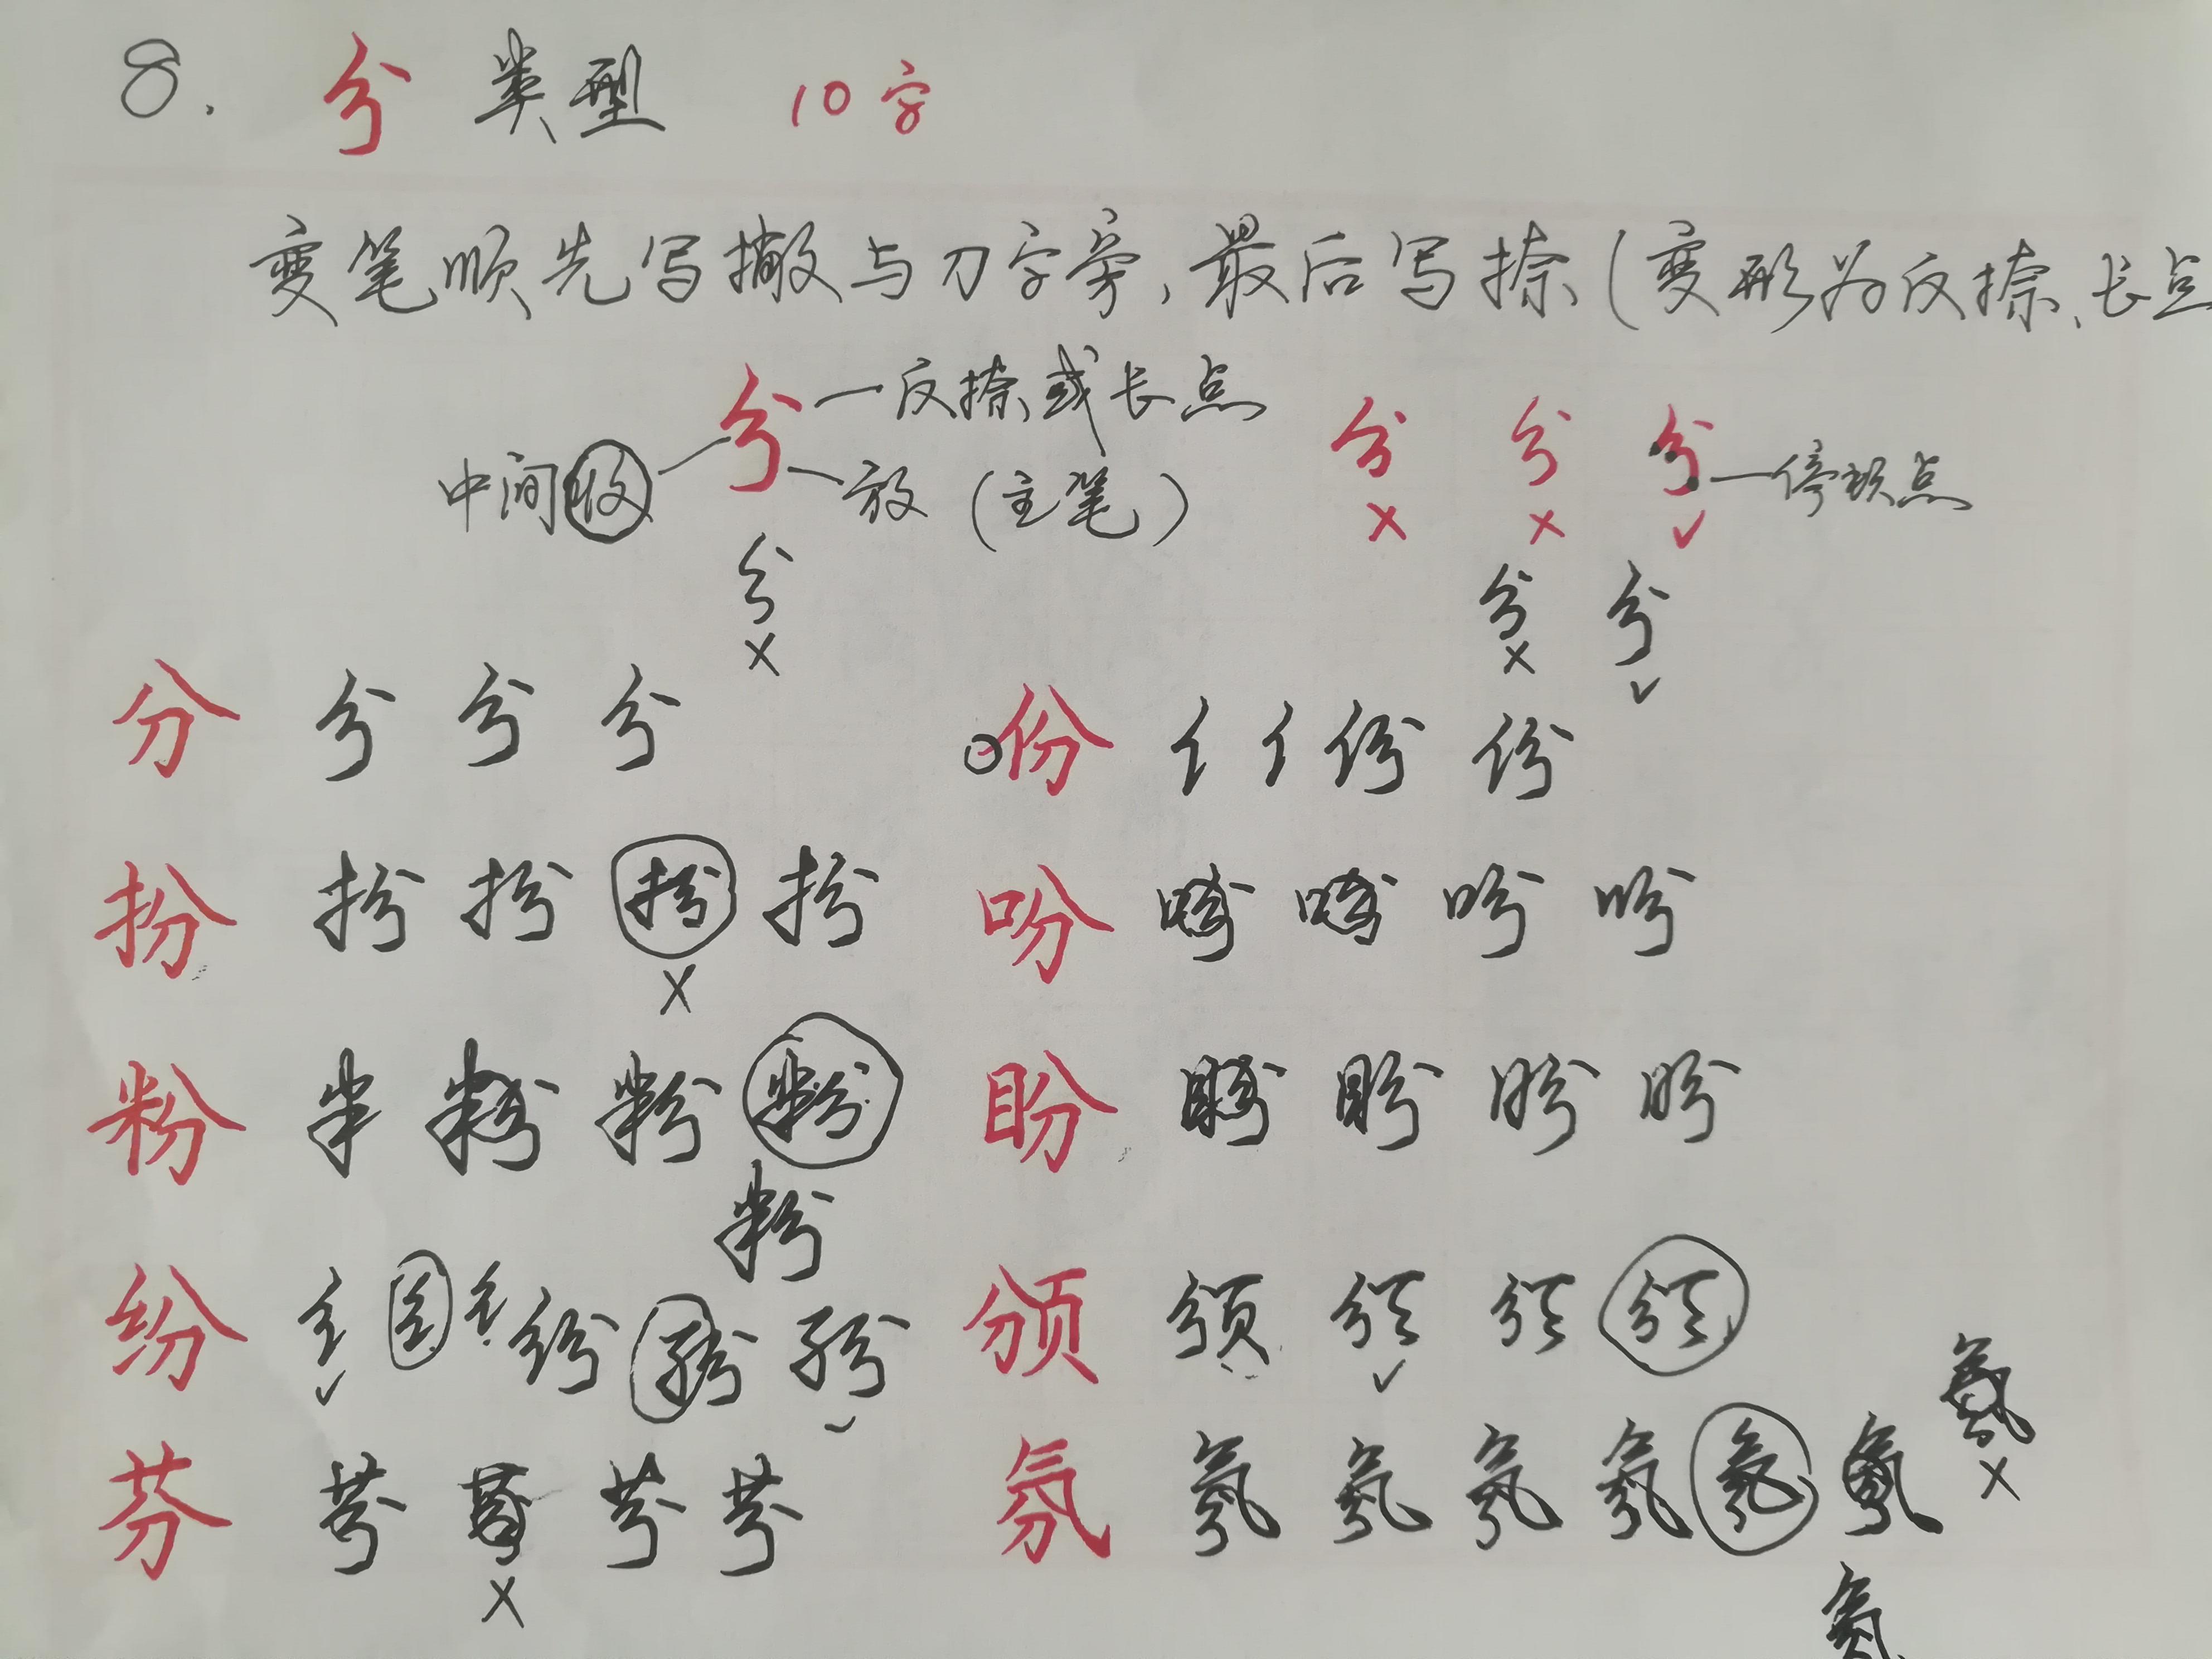 8. 分 类型 10字
变笔顺先写撇与刀字旁,最后写捺(变形为反捺、长点
分 一反捺或长点
中间收 放(主笔) 分 分 分 一停顿点
× × ✓
分 分 分
× × ✓
分 分 分 分 份 亻 亻 份 份
扮 扮 扮 扮 扮 吩 吩 吩 吩 吩
×
粉 米 粉 粉 粉 盼 盼 盼 盼 盼
粉
纷 纟 纟 纟 纷 纷 纷 颁 颁 颁 颁 颁
✓ ✓ ✓
芬 芬 芬 芬 芬 氛 氛 氛 氛 氛 氛 氛 氛
× ×
氛